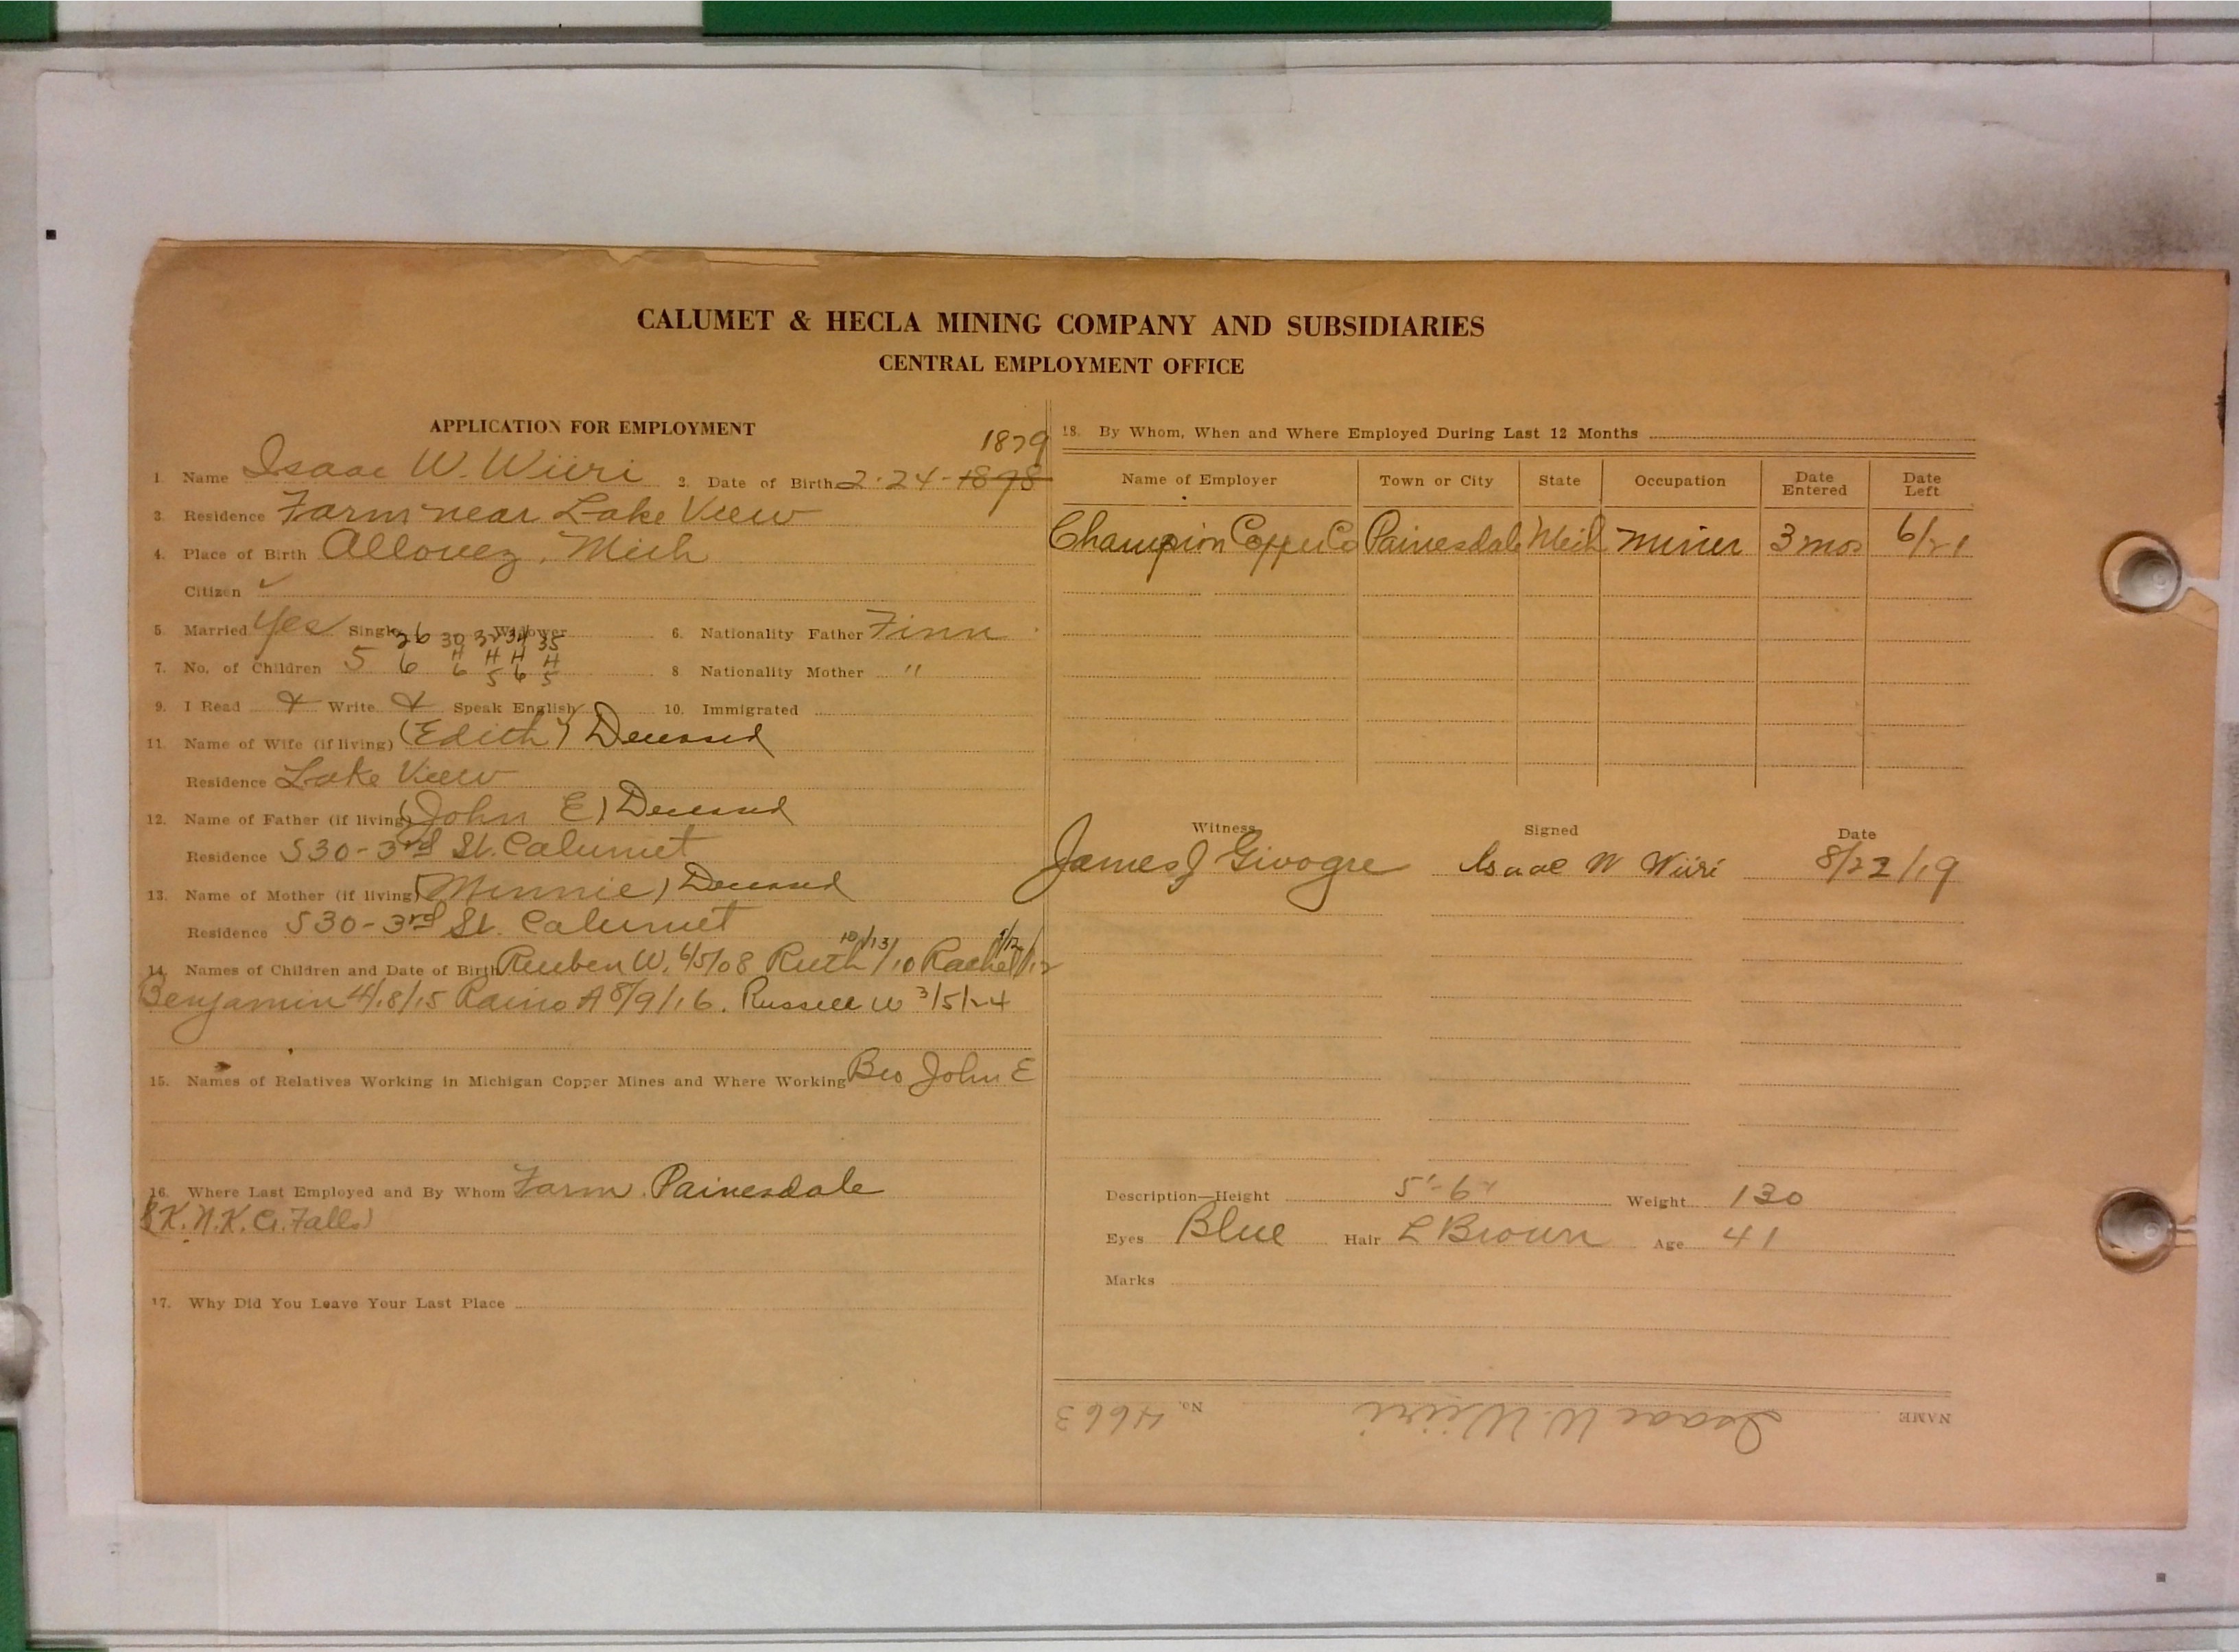 CALUMET & HECLA MINING COMPANY AND SUBSIDIARIES
CENTRAL EMPLOYMENT OFFICE
APPLICATION FOR EMPLOYMENT
1879
1. Name Isaac W. Wiiri 2. Date of Birth 2-24-1878
3. Residence Farm near Lake View
4. Place of Birth Allouez, Mich
Citizen ✓
5. Married Yes Single Widower 6. Nationality Father Finn
26 30 32 34 35
H H H H
7. No. of Children 5 6 6 5 6 5 8 Nationality Mother "
9. I Read Write Speak English 10. Immigrated
11. Name of Wife (if living) (Edith) Deceased
Residence Lake View
12. Name of Father (if living) (John E) Deceased
Residence 530-3rd St. Calumet
13. Name of Mother (if living) (Minnie) Deceased
Residence 530-3rd St. Calumet
14. Names of Children and Date of Birth Reuben W. 6/5/08 Ruth 10/13/10 Rachel /12
Benjamin 4/18/15 Raino A 8/9/16. Russell W 3/5/24
15. Names of Relatives Working in Michigan Copper Mines and Where Working Bro John E
16. Where Last Employed and By Whom Farm. Painesdale
(K.N.K. Cr. Falls)
17. Why Did You Leave Your Last Place
18. By Whom, When and Where Employed During Last 12 Months
Name of Employer Town or City State Occupation Date Entered Date Left
Champion Copper Co Painesdale Mich miner 3 mos 6/21
Witness Signed Date
James J Givogre Isaac W Wiiri 8/22/19
Description—Height 5'-6" Weight 130
Eyes Blue Hair L Brown Age 41
Marks
NAME Isaac W. Wiiri No. 4663